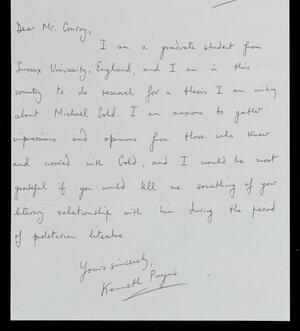 Dear Mr. Conroy,
I am a graduate student from
Sussex University, England, and I am in this
country to do research for a thesis I am writing
about Michael Gold. I am anxious to gather
impressions and opinions from those who knew
and worked with Gold, and I would be most
grateful if you would tell me something of your
literary relationship with him during the period
of proletarian literature.
Yours sincerely,
Kenneth Payne